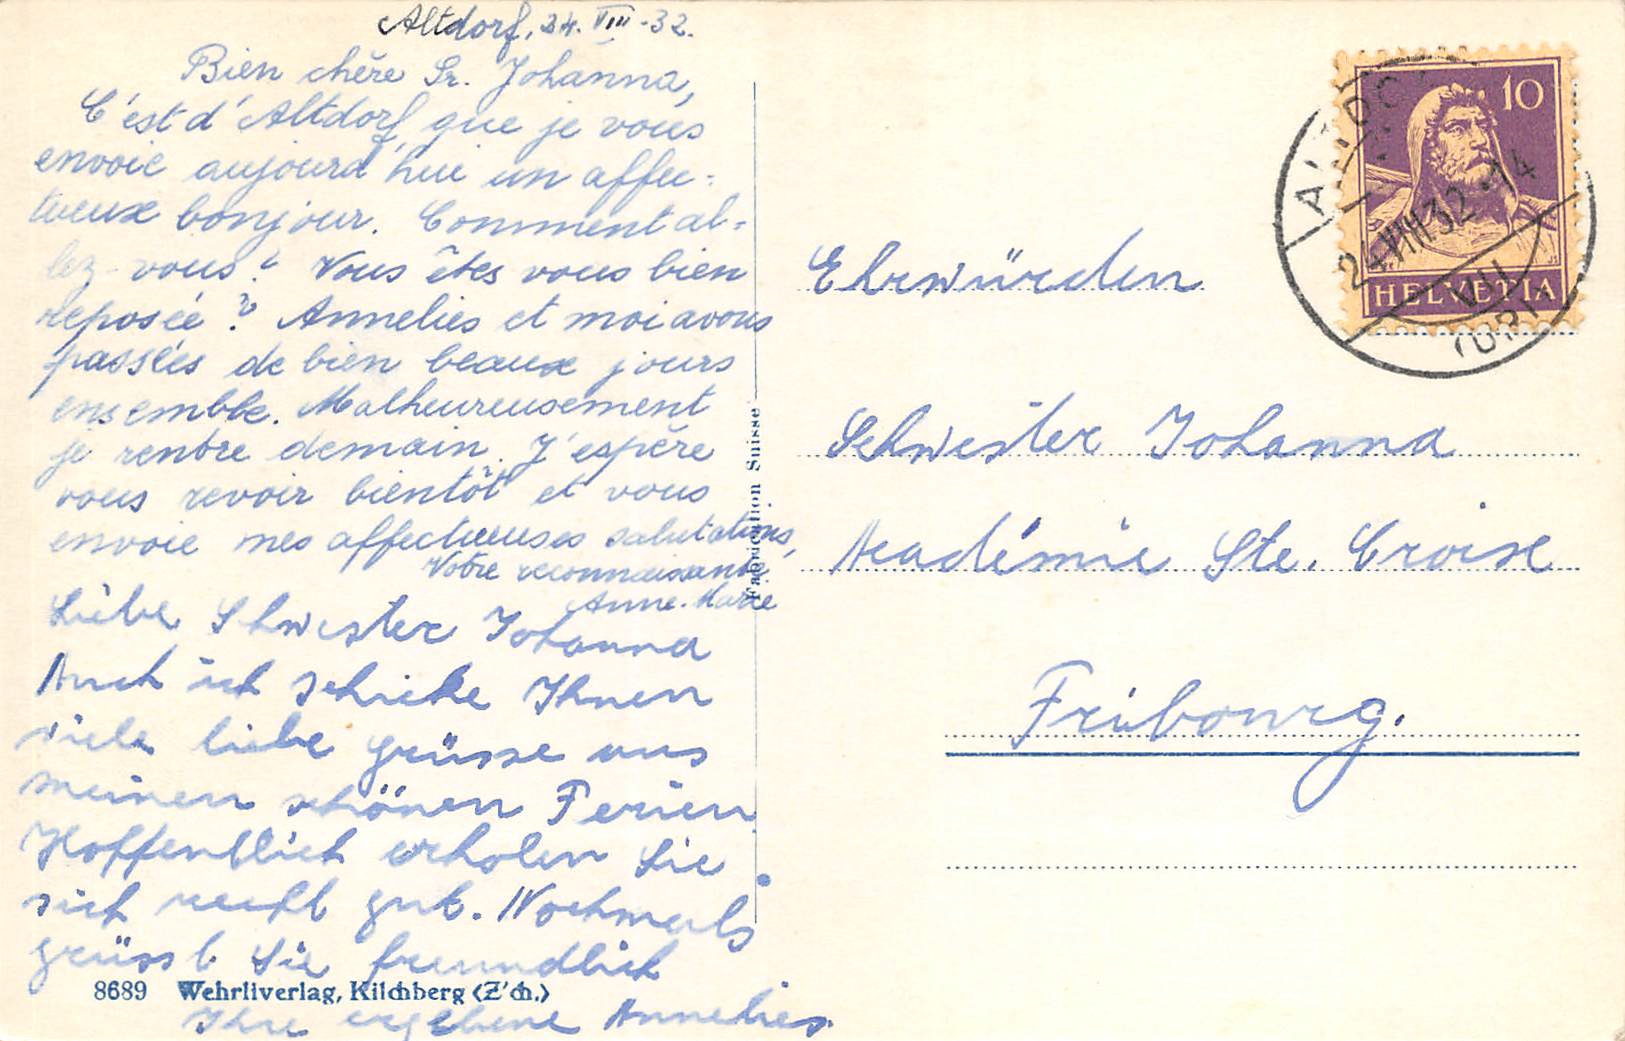 Altdorf, 24. VIII - 32.
Bien chère Sr. Johanna,
C'est d'Altdorf que je vous
envoie aujourd'hui un affec-
tueux bonjour. Comment al-
lez-vous? Vous êtes vous bien
reposée? Annelies et moi avons
passées de bien beaux jours
ensemble. Malheureusement
je rentre demain. J'espère
vous revoir bientôt et vous
envoie mes affectueuses salutations,
Votre reconnaissante
Anne-Marie
Liebe Schwester Johanna
Auch ich schicke Ihnen
viele liebe Grüsse aus
meinen schönen Ferien
Hoffentlich erholen Sie
sich recht gut. Nochmals
grüsst Sie freundlich
Ihre ergebene Annelies.
8689 Wehrliverlag, Kilchberg (Z'ch.)
Fabrication Suisse
10
HELVETIA
ALTDORF
24.VIII.32.-14
(URI)
Ehrwürden
Schwester Johanna
Académie Ste. Croix
Fribourg.